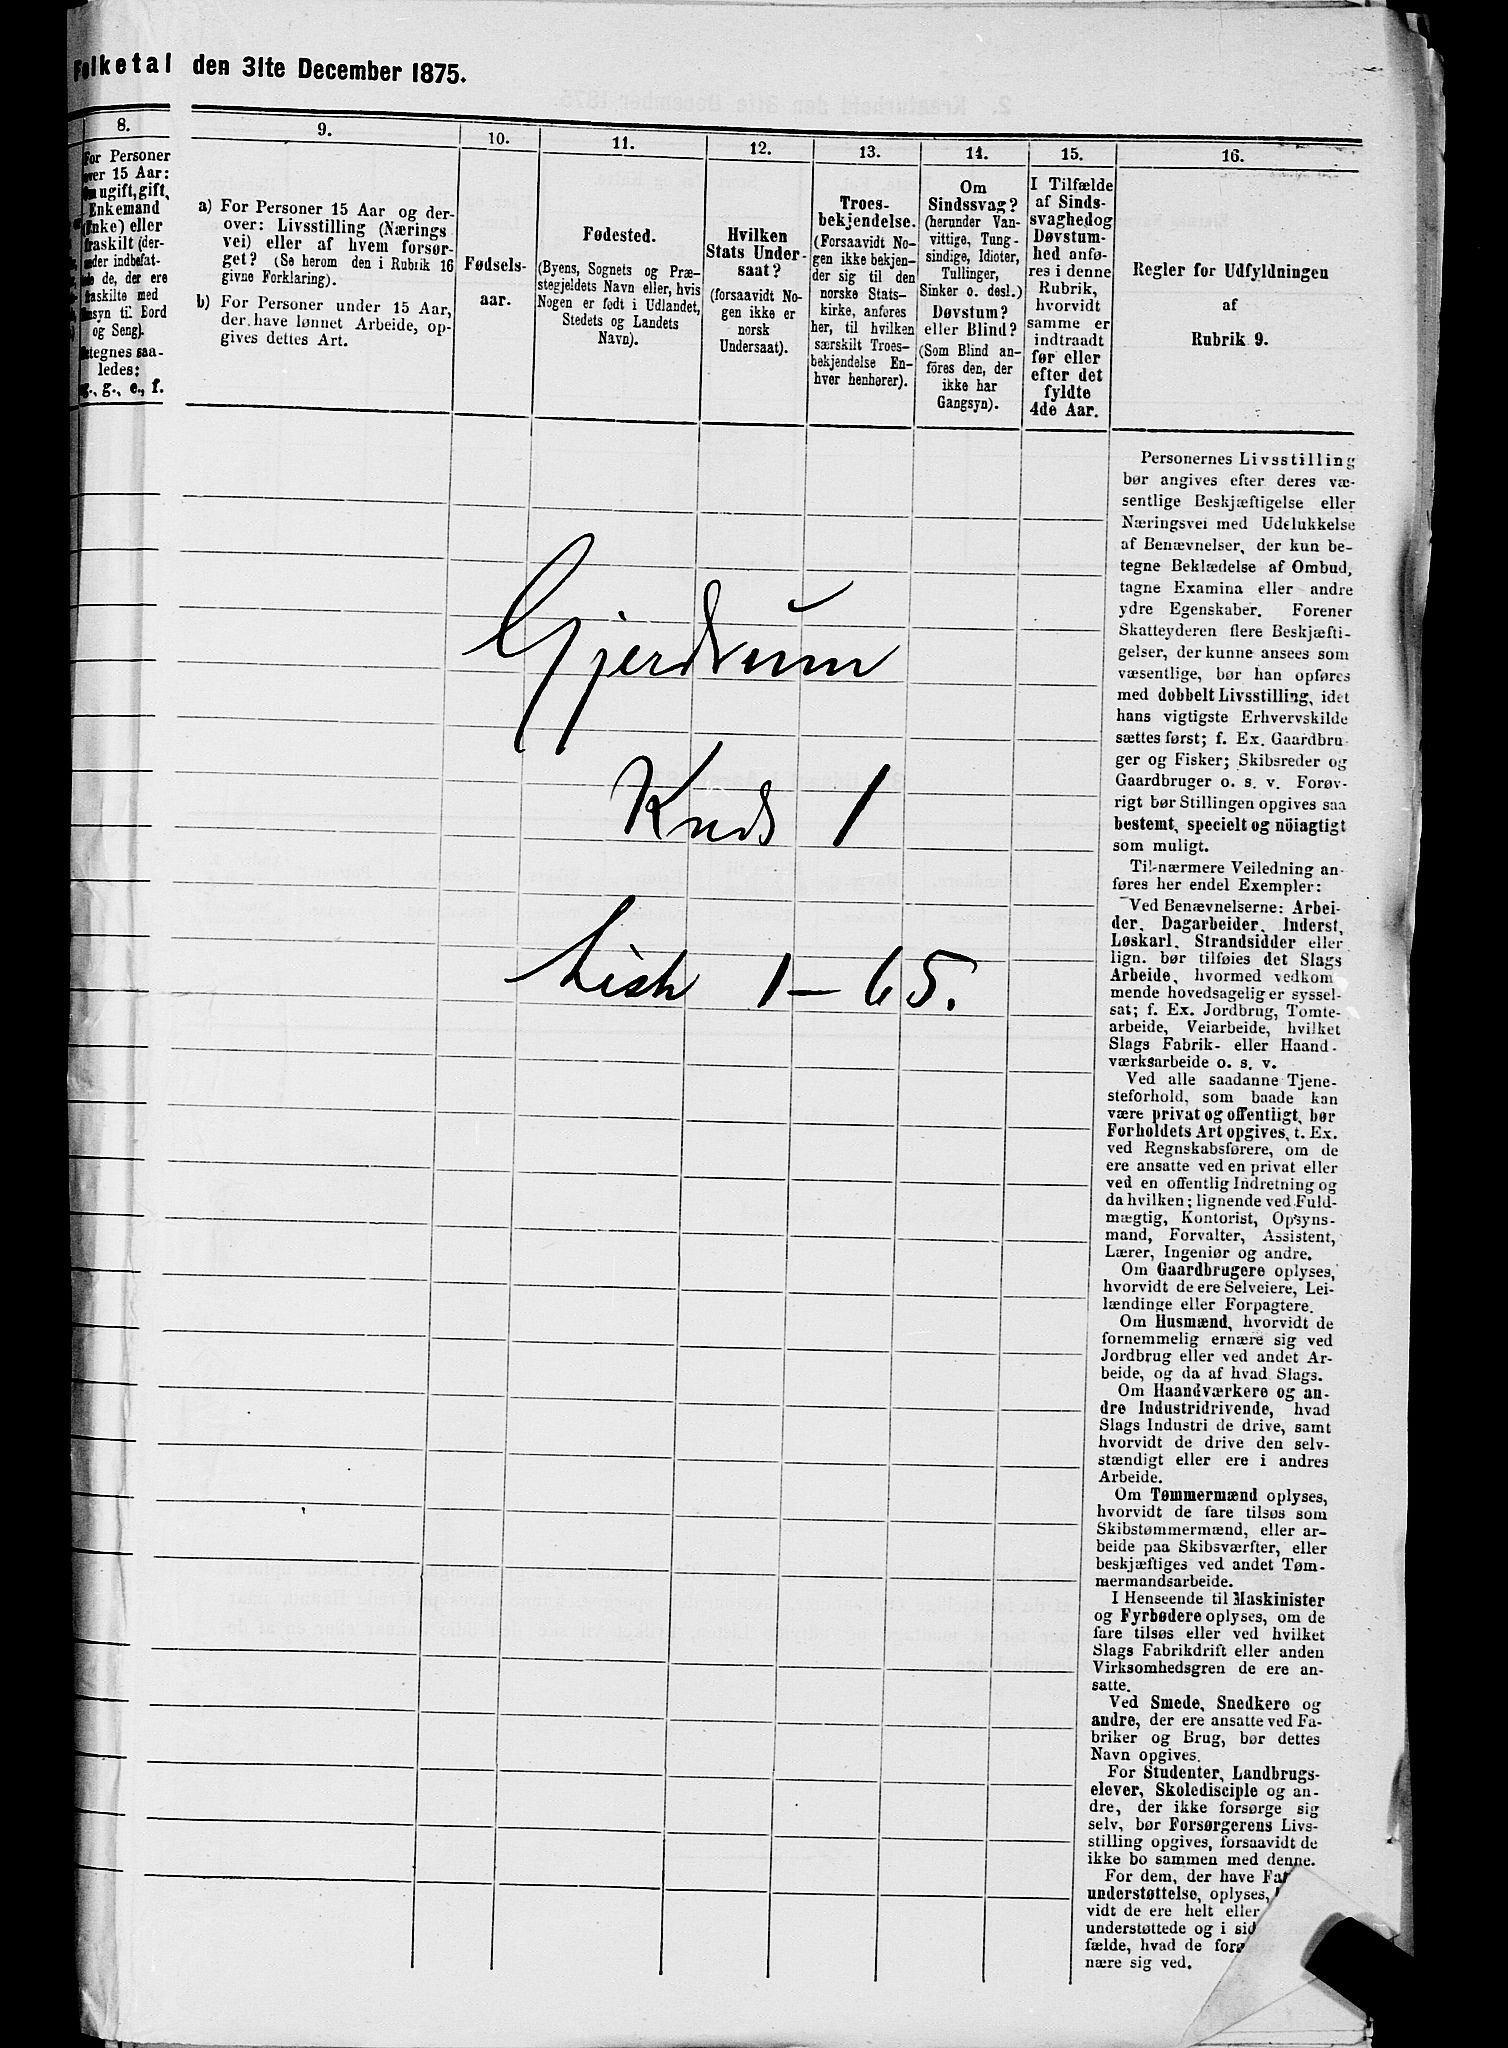 Folketal den 31te December 1875.
8.
For Personer
over 15 Aar:
Om ugift, gift,
Enkemand
(Enke) eller
fraskilt (der-
under indbefat-
tede de, der ere
fraskilte med
Hensyn til Bord
og Seng).
Betegnes saa-
ledes:
ug., g., e., f.
9.
a) For Personer 15 Aar og der-
over: Livsstilling (Nærings
vei) eller af hvem forsør-
get? (Se herom den i Rubrik 16
givne Forklaring).
b) For Personer under 15 Aar,
der have lønnet Arbeide, op-
gives dettes Art.
10.
Fødsels-
aar.
11.
Fødested.
(Byens, Sognets og Præ-
stegjeldets Navn eller, hvis
Nogen er født i Udlandet,
Stedets og Landets
Navn).
12.
Hvilken
Stats Under-
saat?
(forsaavidt No-
gen ikke er
norsk
Undersaat).
13.
Troes-
bekjendelse.
(Forsaavidt No-
gen ikke bekjen-
der sig til den
norske Stats-
kirke, anføres
her, til hvilken
særskilt Troes-
bekjendelse En-
hver henhører).
14.
Om
Sindssvag?
(herunder Van-
vittige, Tung-
sindige, Idioter,
Tullinger,
Sinker o. desl.)
Døvstum?
eller Blind?
(Som Blind an-
føres den, der
ikke har
Gangsyn).
15.
I Tilfælde
af Sinds-
svaghed og
Døvstum-
hed anfø-
res i denne
Rubrik,
hvorvidt
samme er
indtraadt
før eller
efter det
fyldte
4de Aar.
16.
Regler for Udfyldningen
af
Rubrik 9.
Personernes Livsstilling
bør angives efter deres væ-
sentlige Beskjæftigelse eller
Næringsvei med Udelukkelse
af Benævnelser, der kun be-
tegne Beklædelse af Ombud,
tagne Examina eller andre
ydre Egenskaber. Forener
Skatteyderen flere Beskjæfti-
gelser, der kunne ansees som
væsentlige, bør han opføres
med dobbelt Livsstilling, idet
hans vigtigste Erhvervskilde
sættes først; f. Ex. Gaardbru-
ger og Fisker; Skibsreder og
Gaardbruger o. s. v. Forøv-
rigt bør Stillingen opgives saa
bestemt, specielt og nöiagtigt
som muligt.
Til nærmere Veiledning an-
føres her endel Exempler:
Ved Benævnelserne: Arbei-
der, Dagarbeider, Inderst,
Løskarl, Strandsidder eller
lign. bør tilføies det Slags
Arbeide, hvormed vedkom
mende hovedsagelig er syssel-
sat; f. Ex. Jordbrug, Tomte-
arbeide, Veiarbeide, hvilket
Slags Fabrik- eller Haand-
værksarbeide o. s. v.
Ved alle saadanne Tjene-
steforhold, som baade kan
være privat og offentligt, bør
Forholdets Art opgives, t. Ex.
ved Regnskabsførere, om de
ere ansatte ved en privat eller
ved en offentlig Indretning og
da hvilken; lignende ved Fuld-
mægtig, Kontorist, Opsyns-
mand, Forvalter, Assistent,
Lærer, Ingeniør og andre.
Om Gaardbrugere oplyses,
hvorvidt de ere Selveiere, Lei-
lændinge eller Forpagtere.
Om Husmænd, hvorvidt de
fornemmelig ernære sig ved
Jordbrug eller ved andet Ar-
beide, og da af hvad Slags.
Om Haandværkere og an-
dre Industridrivende, hvad
Slags Industri de drive, samt
hvorvidt de drive den selv-
stændigt eller ere i andres
Arbeide.
Om Tømmermænd oplyses,
hvorvidt de fare tilsøs som
Skibstømmermænd, eller ar-
beide paa Skibsværfter, eller
beskjæftiges ved andet Tøm-
mermandsarbeide.
I Henseende til Maskinister
og Fyrbødere oplyses, om de
fare tilsøs eller ved hvilket
Slags Fabrikdrift eller anden
Virksomhedsgren de ere an-
satte.
Ved Smede, Snedkere og
andre, der ere ansatte ved Fa-
briker og Brug, bør dettes
Navn opgives.
For Studenter, Landbrugs-
elever, Skoledisciple og an-
dre, der ikke forsørge sig
selv, bør Forsørgerens Livs-
stilling opgives, forsaavidt de
ikke bo sammen med denne.
For dem, der have Fat
understøttelse, oplyses,
vidt de ere helt eller
understøttede og i sid
fælde, hvad de forø
nære sig ved.
Gjerdrum
Kreds 1
Liste 1-65.